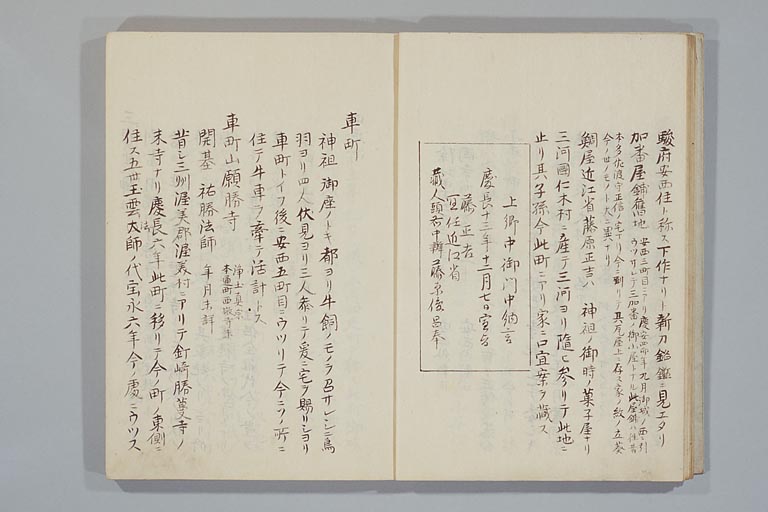 駿府安西住ト称ス下作ナリト新刀銘鑑ニ見エタリ
加番屋鋪舊地
安西三町目ニアリ慶安四卯年九月御城ノ西ニ引
ウツサレテ三加番ノ御小屋トナル此屋鋪ハ往昔
本多佐渡守正信ノ宅ナリ今ニ到リテ其瓦屋上ニ存ス家ノ紋ノ立葵
今ノ世ノモノト大ニ異ナリ
鯛屋近江省藤原正吉ハ 神祖ノ御時ノ菓子屋ナリ
三河國仁木村ニ産テ三河ヨリ隨ヒ参リテ此地ニ
止リ其子孫今此町ニアリ家ニ口宣案ヲ藏ス
上卿中御門中納言
慶長十三年十二月七日宣旨
藤正吉
宜任近江省
藏人頭右中辨藤原俊昌奉
車町
神祖御座ノトキ都ヨリ牛飼ノモノヲ召サレシニ鳥
羽ヨリ四人伏見ヨリ三人参リテ爰ニ宅ヲ賜リシヨリ
車町トイフ後ニ安西五町目ニウツリテ今ニソノ所ニ
住テ牛車ヲ牽テ活計トス
車町山願勝寺
浄土真宗
本重町西敬寺末
開基 祐勝法師 年月未詳
昔シ三州渥美郡渥美村ニアリテ釘崎勝蔓寺ノ
末寺ナリ慶長六年此町ニ移リテ今ノ町ノ東側ニ
住ス五世玉雲法師ノ代宝永六年今ノ處ニウツス